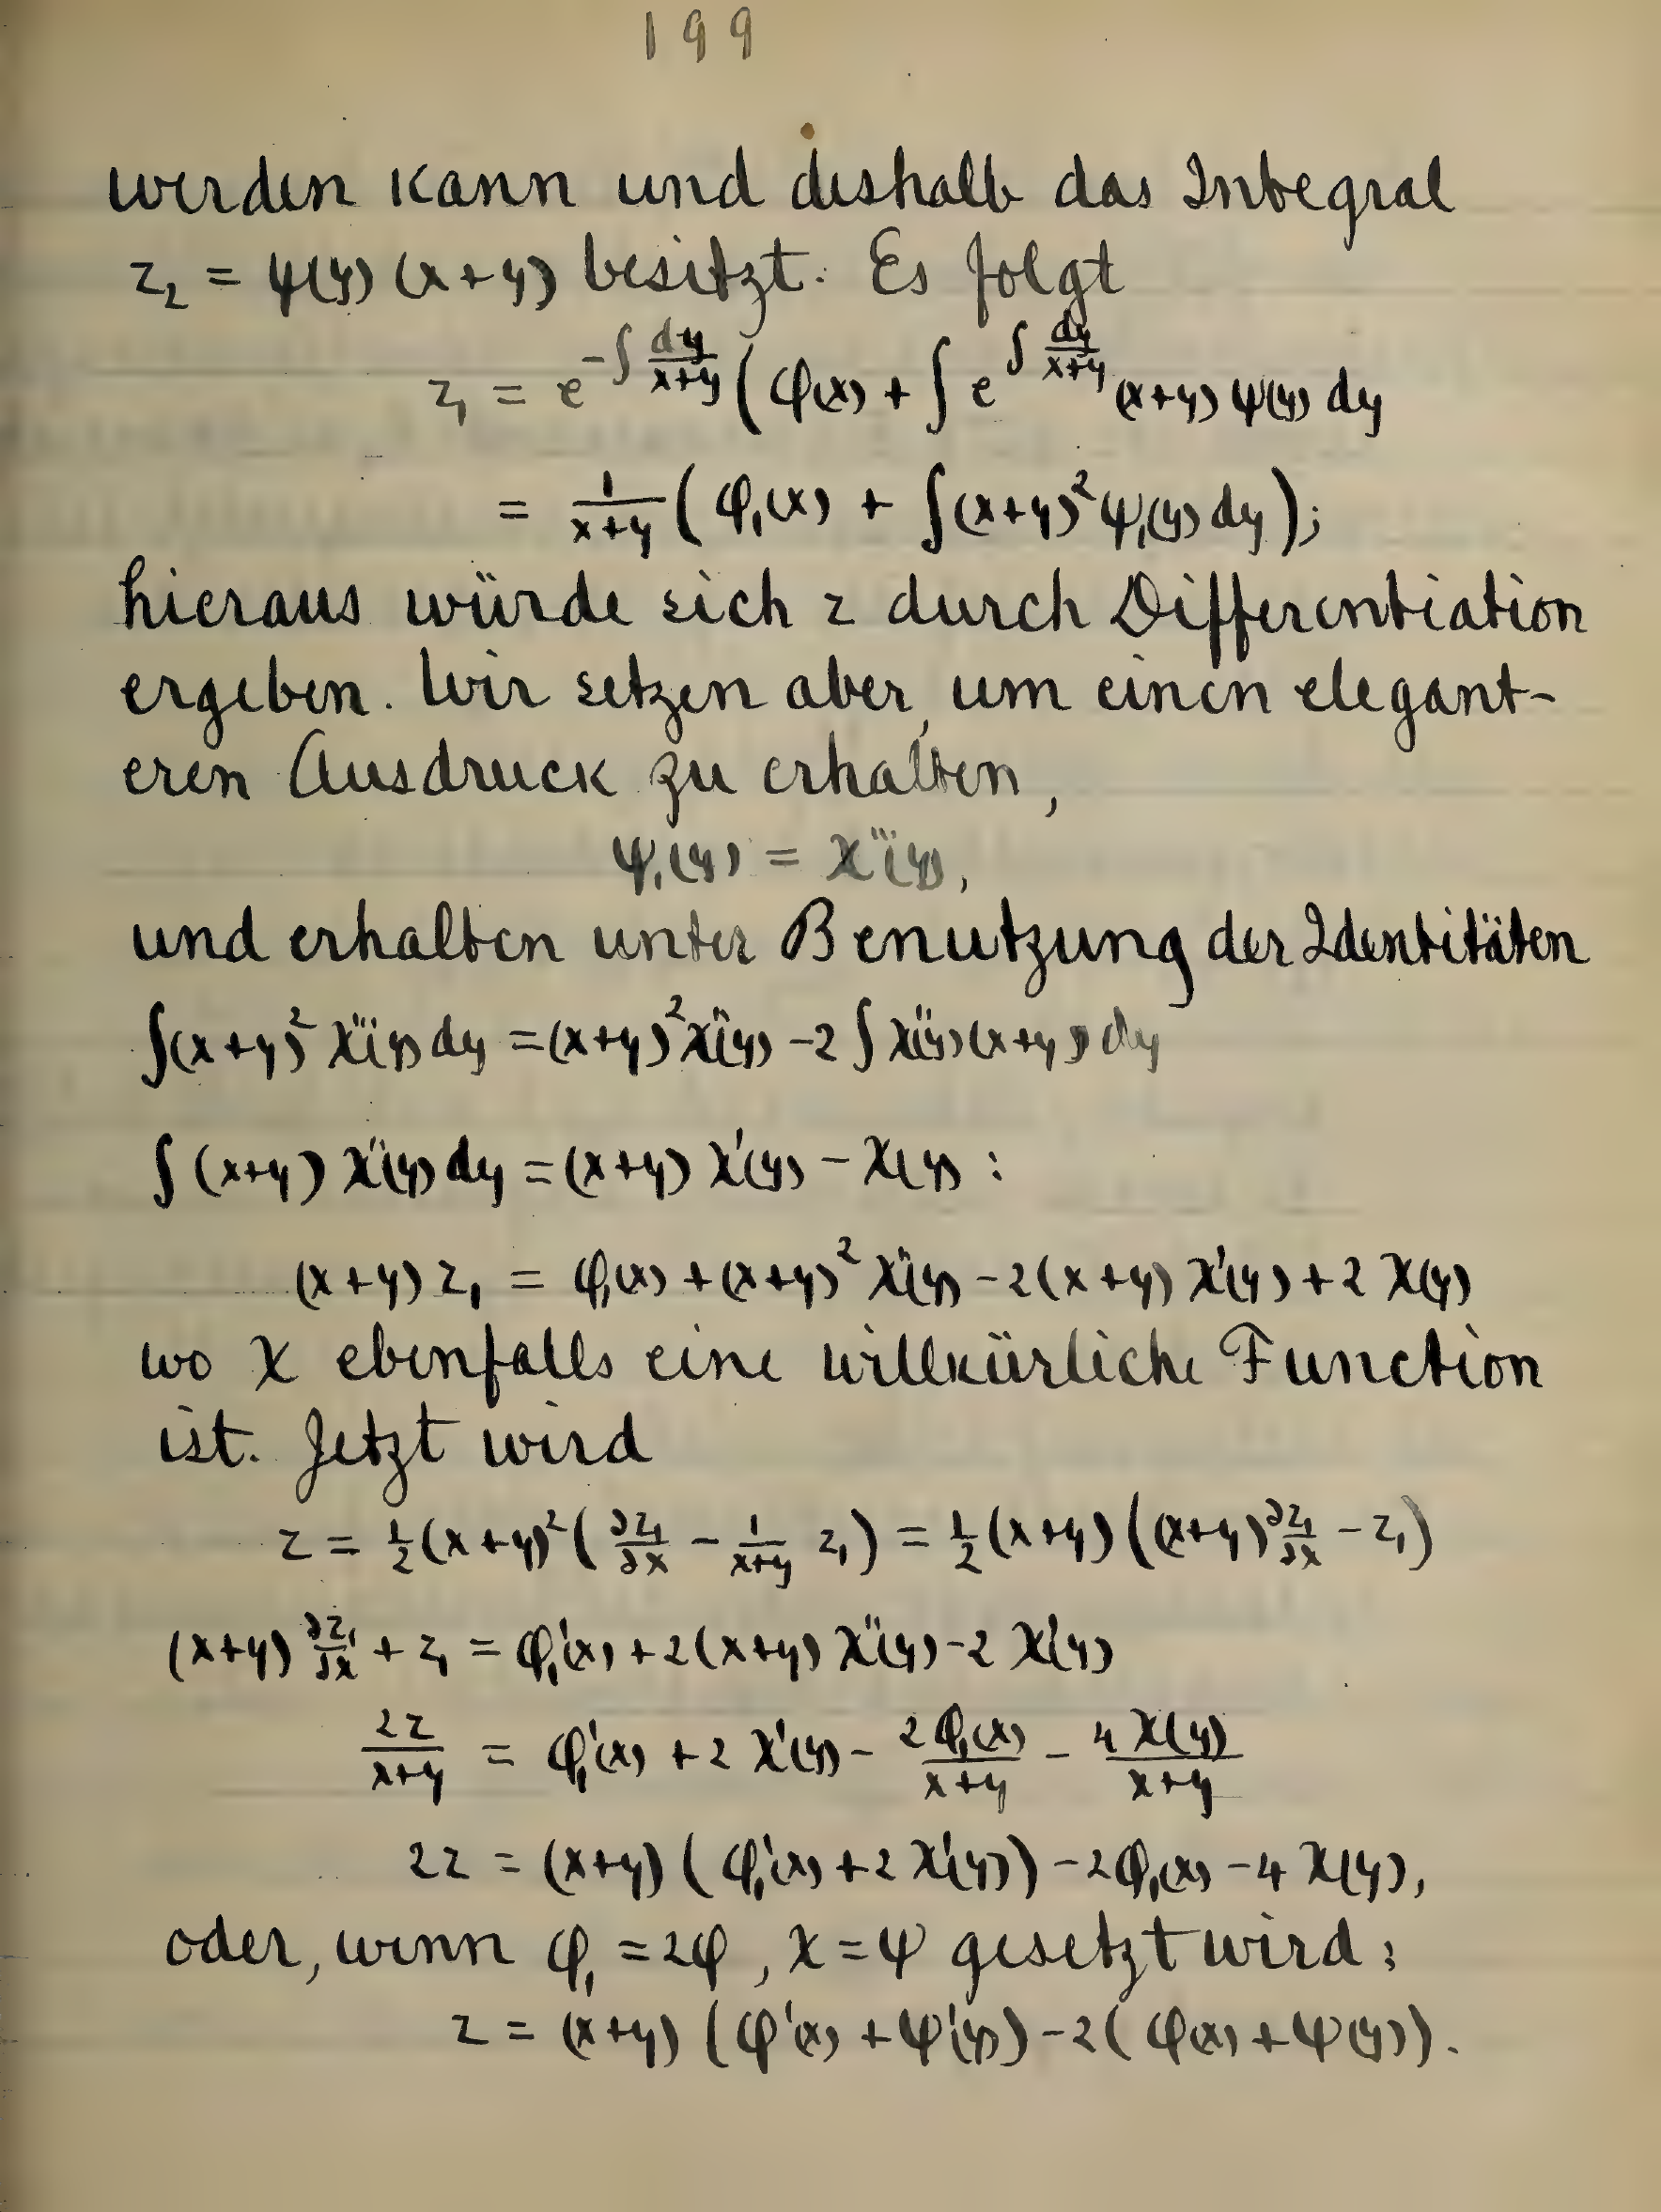 199
werden kann und deshalb das Integral
z₂ = ψ(y) (x+y) besitzt. Es folgt
z₁ = e^{-∫ dy/(x+y)} ( φ(x) + ∫ e^{∫ dy/(x+y)} (x+y) ψ(y) dy
= 1/(x+y) ( φ₁(x) + ∫(x+y)² ψ₁(y) dy );
hieraus würde sich z durch Differentiation
ergeben. Wir setzen aber, um einen elegant-
eren Ausdruck zu erhalten,
ψ₁(y) = χ'''(y),
und erhalten unter Benutzung der Identitäten
∫(x+y)² χ'''(y) dy = (x+y)² χ''(y) - 2 ∫ χ''(y) (x+y) dy
∫ (x+y) χ''(y) dy = (x+y) χ'(y) - χ(y) :
(x+y) z₁ = φ₁(x) + (x+y)² χ''(y) - 2(x+y) χ'(y) + 2 χ(y)
wo χ ebenfalls eine willkürliche Function
ist. Jetzt wird
z = ½ (x+y)² ( ∂z₁/∂x - 1/(x+y) z₁ ) = ½ (x+y) ( (x+y) ∂z₁/∂x - z₁ )
(x+y) ∂z₁/∂x + z₁ = φ₁'(x) + 2(x+y) χ''(y) - 2 χ'(y)
2z/(x+y) = φ₁'(x) + 2 χ'(y) - 2φ₁(x)/(x+y) - 4χ(y)/(x+y)
2z = (x+y) ( φ₁'(x) + 2 χ'(y) ) - 2φ₁(x) - 4 χ(y),
oder, wenn φ₁ = 2φ, χ = ψ gesetzt wird:
z = (x+y) ( φ'(x) + ψ'(y) ) - 2 ( φ(x) + ψ(y) ).